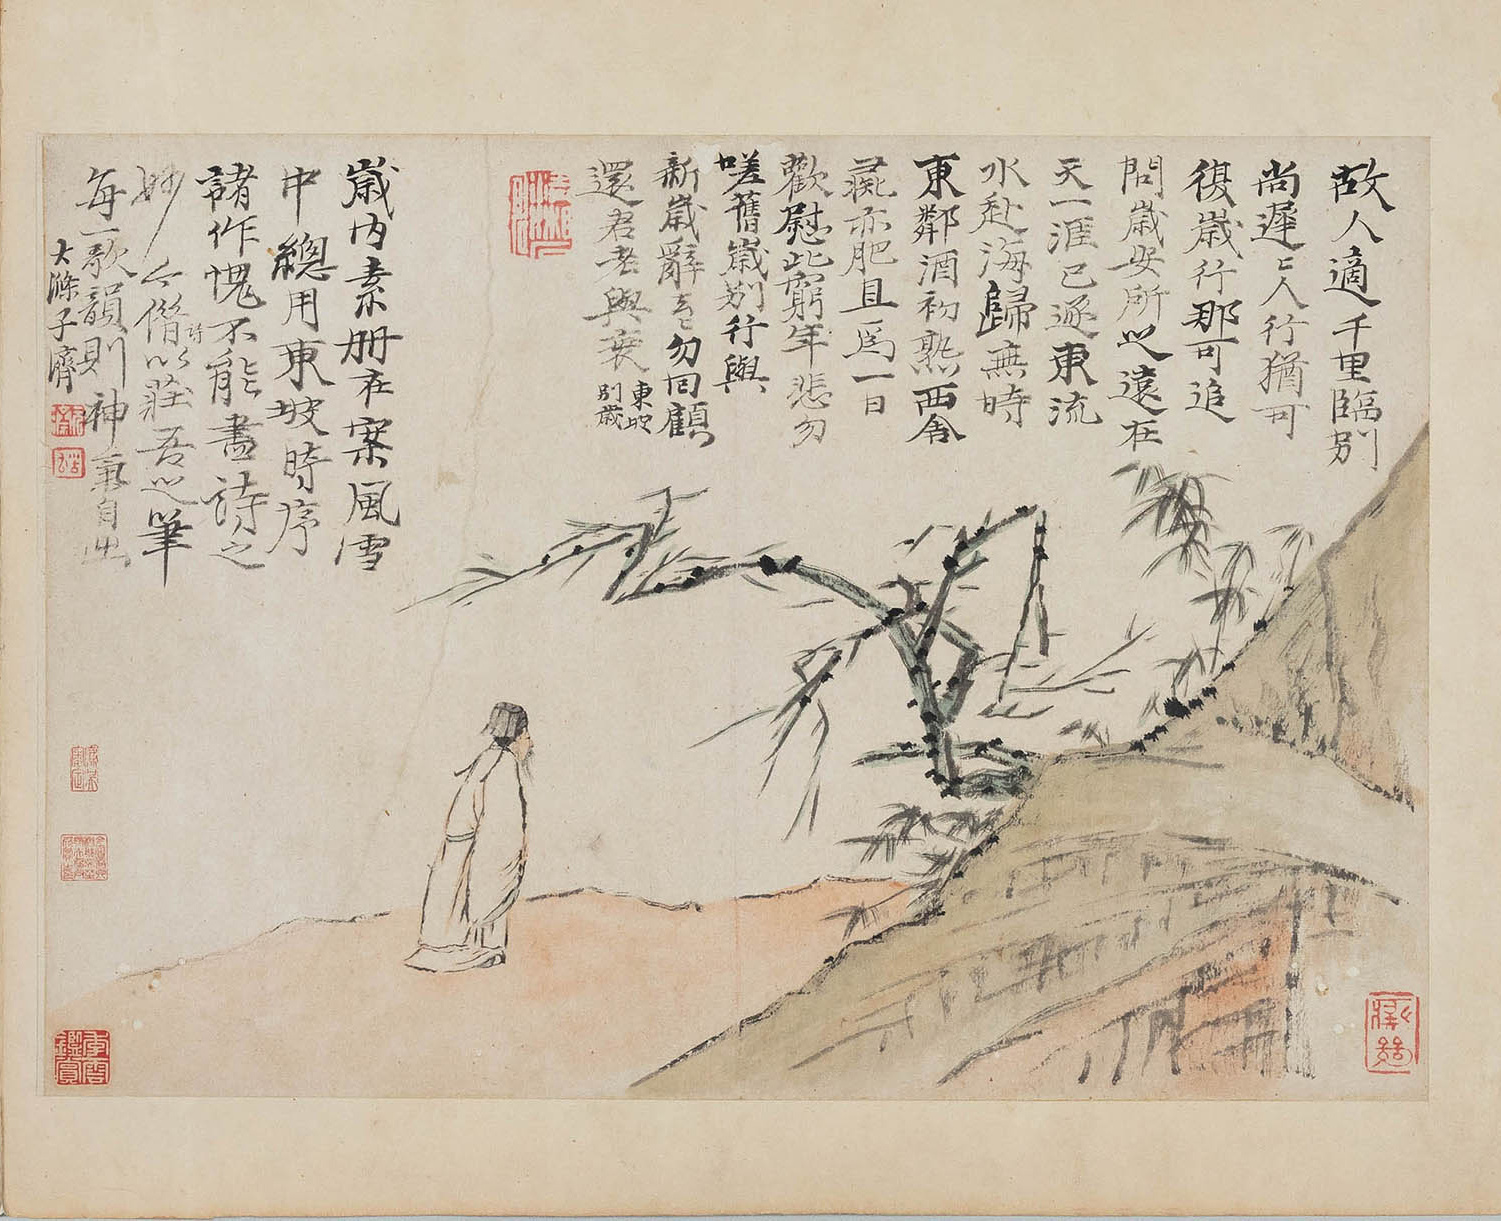 故人適千里臨別
尚遲遲人行猶可
復歲行那可追
問歲安所之遠在
天一涯已逐東流
水赴海歸無時
東鄰酒初熟西舍
彘亦肥且為一日
歡慰此窮年悲勿
嗟舊歲別行與
新歲辭去去勿回顧
還君老與衰
東坡
別歲
歲內素冊在案風雪
中總用東坡時序
諸作愧不能盡詩之
妙今僭以詩莊吾之筆
每一歌韻則神氣自出
大滌子濟